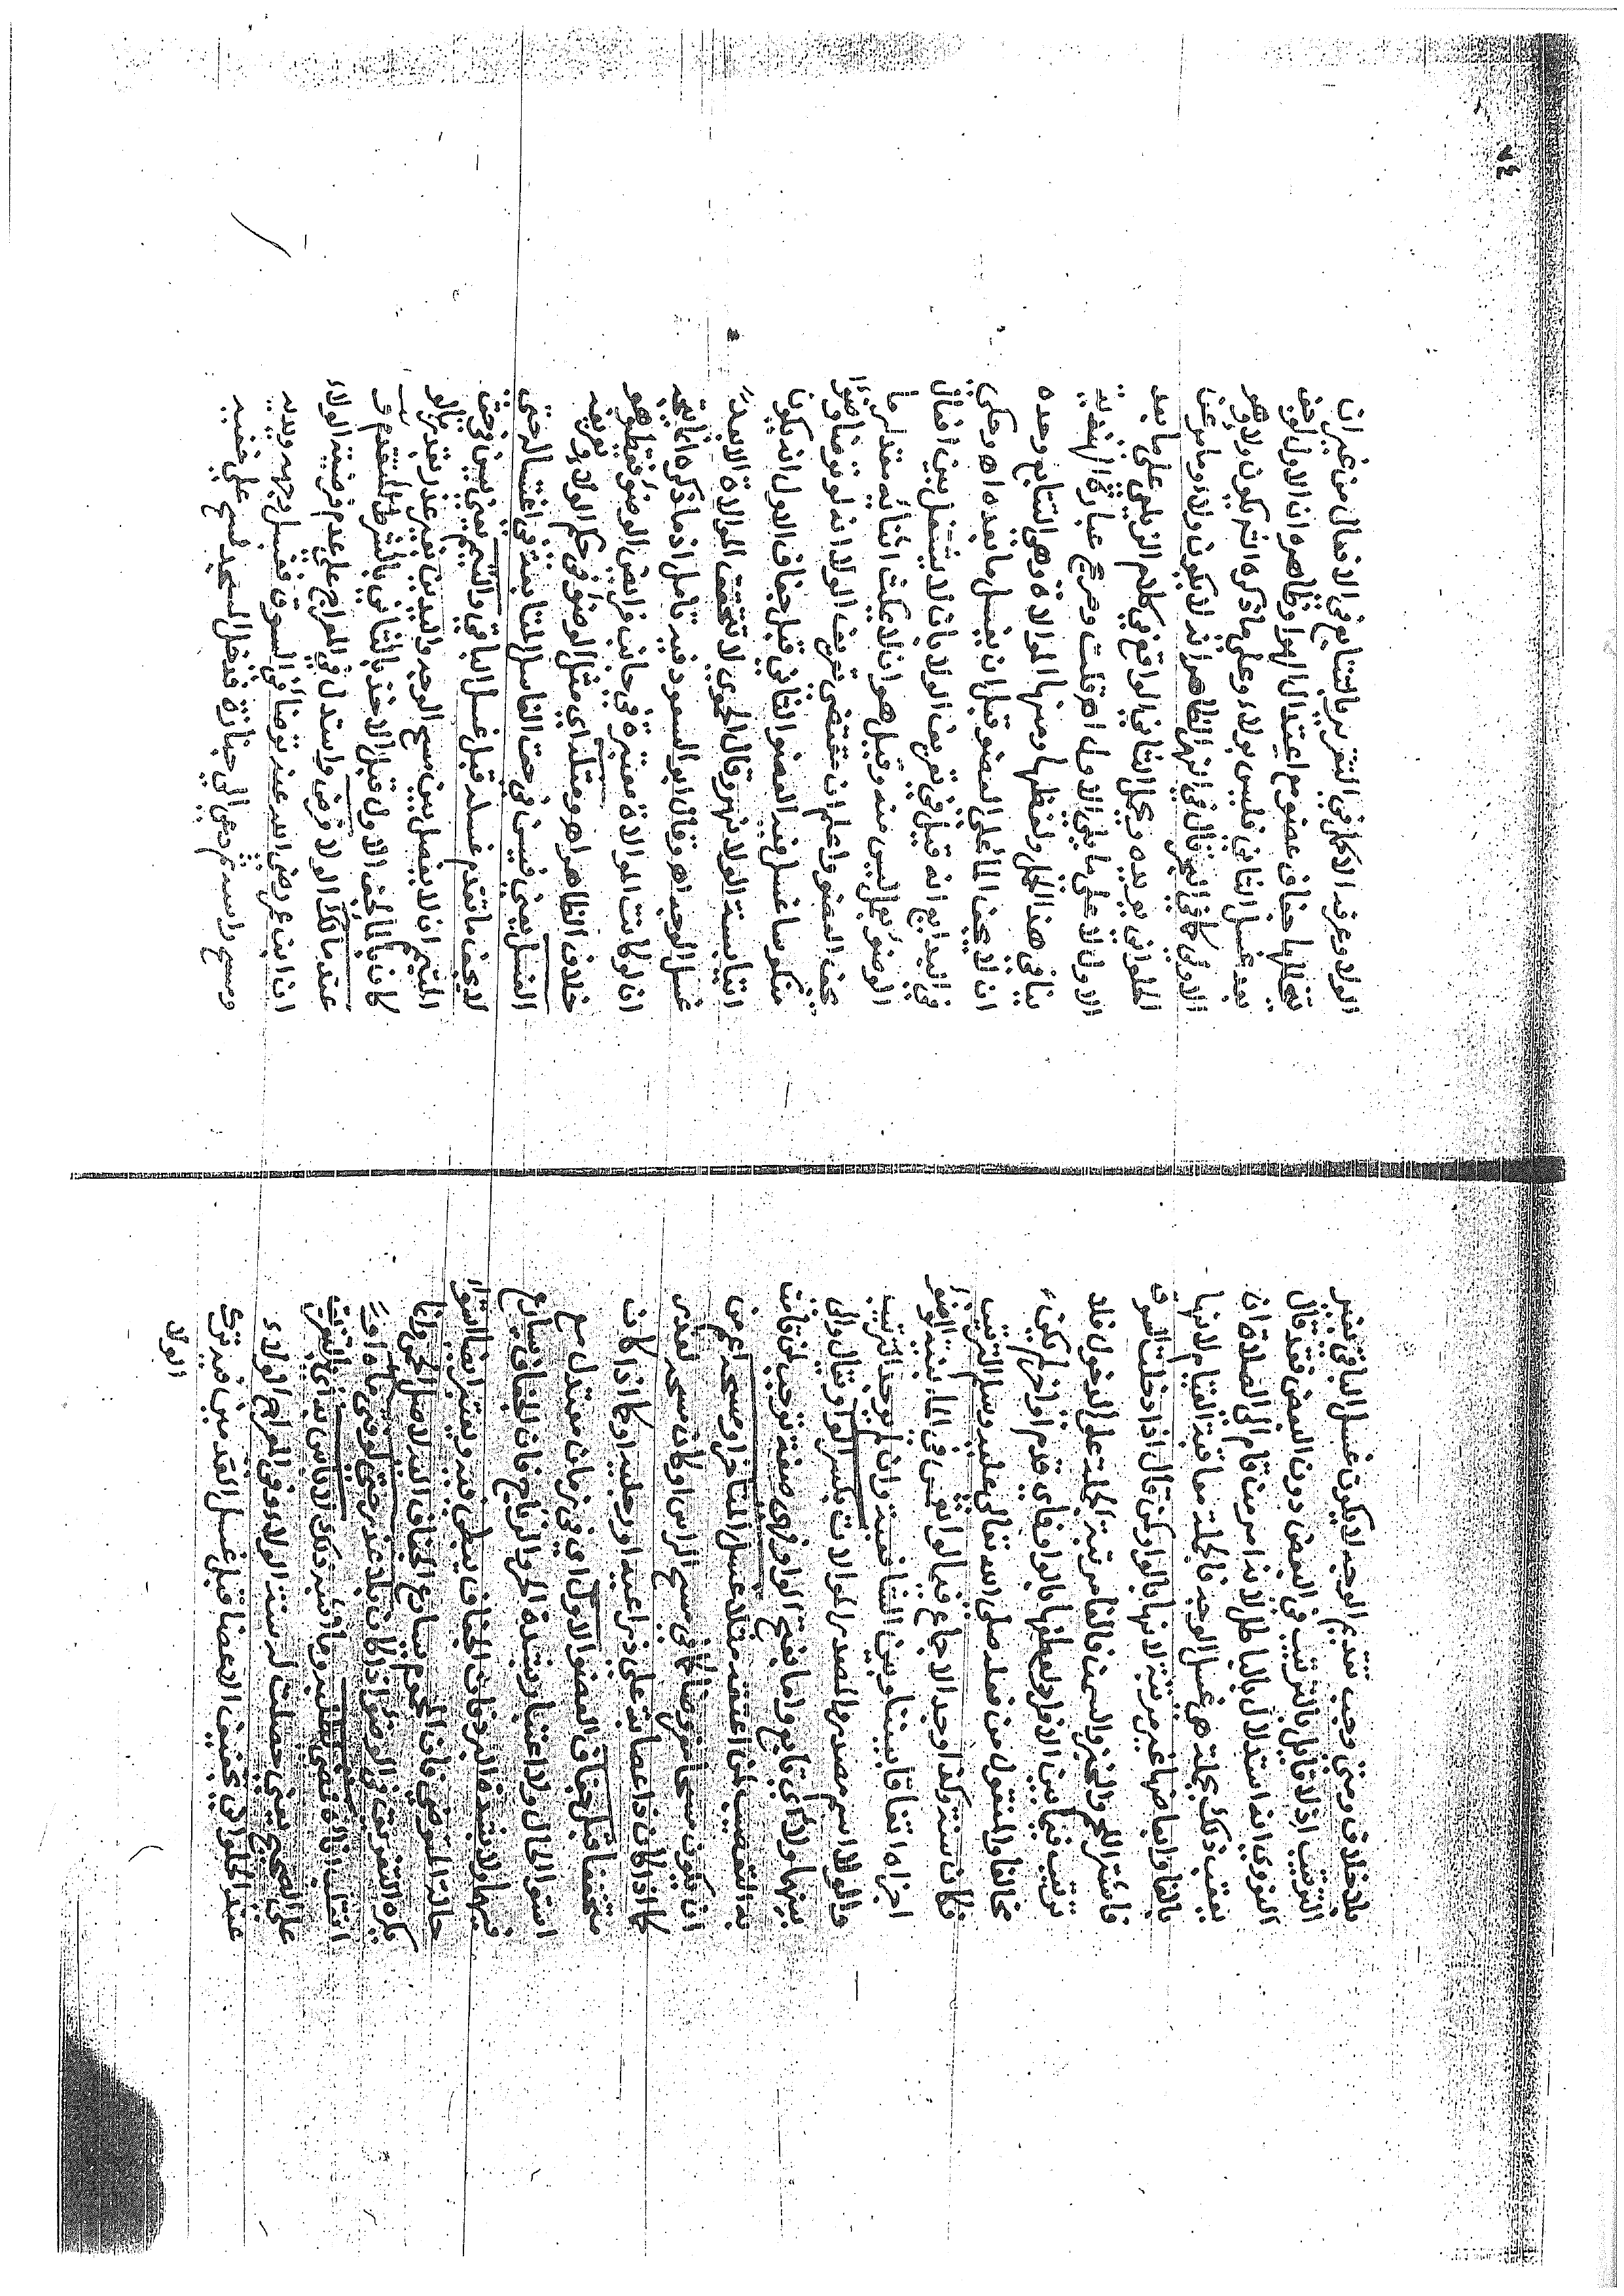 بلا خلاف ومتى وجب تقديم الوجه لا يكون غسل الباقي بغير
الترتيب اذ لا قائل بالترتيب في البعض دون البعض فقد قال
النووي انه استدلال باطل لانه امر من قام الى الصلاة ان
يعقب ذلك بجملة هي غسل الوجه فالجملة معاقبة القيام لانها
بالفاء وابعاضها غير مرتبة لانها بالواو كمن قال اذا دخلت السوق
فاشتر اللحم والخبز والسمن فالفا مرتبة الجملة على الدخول فلا
ترتيب فيما بين الافراد لعطفها بالواو فاي قدم او اخر لم يكن
مخالفا والمنقول من فعله صلى الله تعالى عليه وسلم الترتيب
فكان سنة وكذا وجد الاجماع فيما لو انغمس في الماء بنية الوضو
اجزاه اتفاقا بيننا وبين الشافعية وان لم يوجد الترتيب
والولا اسم مصدر والمصدر الموالات بكسر الواو يقال والى
بينهما ولاء اي تابع واما بفتح الواو فهي صفة توجب لمن قامت
به التعصيب لمن اعتقه مثلا غسل المتاخر او مسحه اعم من
ان يكون مسحا مفروضا كما في مسح الراس او كان مسحه لعذر
كما اذا كان في اعضائه على ذراعيه او رجليه او كما اذا كان
متخففا قبل جفاف العضو الاول اي في زمان معتدل مع
استوا الحال ولا اعتبار بشدة الحر والرياح فان الجفاف يسارع
فيهما ولا بشدة البرد فان الجفاف يبطى فيه ويعتبر ايضا استواء
حالة المتوضي فان المحموم يسارع الجفاف اليه لاصل الحمى وانما
يكره التفريق في الوضوء اذا كان بلا عذر حتى لو فنى ماه او
انقلب اناؤه فمضى لطلبه وما اشبه ذلك لا باس به اي التفريق
على الصحيح يعني حصلت له سنة الولاء وفي المعراج الولاء
عند الحلواني تجفيف الاعضا قبل غسل القدمين فيه ترك
الولا
الولاء وعرفه الاكمل في التقرير بالتتابع في الافعال من غير ان
يتخللها جفاف عضو مع اعتدال الهوا وظاهره ان الاول لو جف
بعد غسل الثاني فليس بولاء وعلى ما ذكره الشم يكون ولاء وهو
الاولى كما في البحر قال في النهر الظاهر انه لا يكون ولاء وما مر عن
الحلواني يويده ويحمل الثاني الواقع في كلام الزيلعي على ما بعد
الاول لا على ما يلي الاول اهـ قلت وصريح عبارة النهاية
ينافي هذا الحمل ولفظها ومنها الموالاة وهي التتابع وحده
ان لا يجف الماء على العضو قبل ان يغسل ما بعده اهـ وحكى
في البدايع انه قيل في تعريف الولا بان لا يشتغل بين افعال
الوضو بما ليس منه وقيل هو ان لا يمكث اثنائه مقدار ما
يجف العضو واعلم ان مقتضى تعريف الولا انه لو توضا وضوا
منكوسا غسل فيه العضو الثاني قبل جفاف الاول انه يكون
اتيا بسنة الولا نهر وقال الحموي لا تتحقق الموالاة الا بعد
غسل الوجه اهـ وقال ابو السعود فيه تامل اذ ما ذكره انما يتجه
ان لو كانت الموالاة معتبرة في جانب فرايض الوضو فقط وهو
خلاف الظاهر اهـ ومثله اي مثل الوضو في حكم الولا وتعريفه
الغسل يعني فيسن في حق الغاسل المتابعة في اغتساله حتى
لا يجف ما تقدم غسله قبل غسل الباقي والتيمم يعني يسن في حق
المتيمم ان لا يفصل بين مسح الوجه واليدين بغير عذر بقدر ما لو
كان ماء لجف الاول قبل الاخذ بالثاني بالشرط المتقدم و
عند مالك الولا فرض واستدل في المعراج على عدم فرضية الولاء
ان ابن عمر رضي الله عنه توضا في السوق فغسل وجهه ويديه
ومسح راسه ثم دعي الى جنازة فدخل المسجد ثم مسح على خفيه